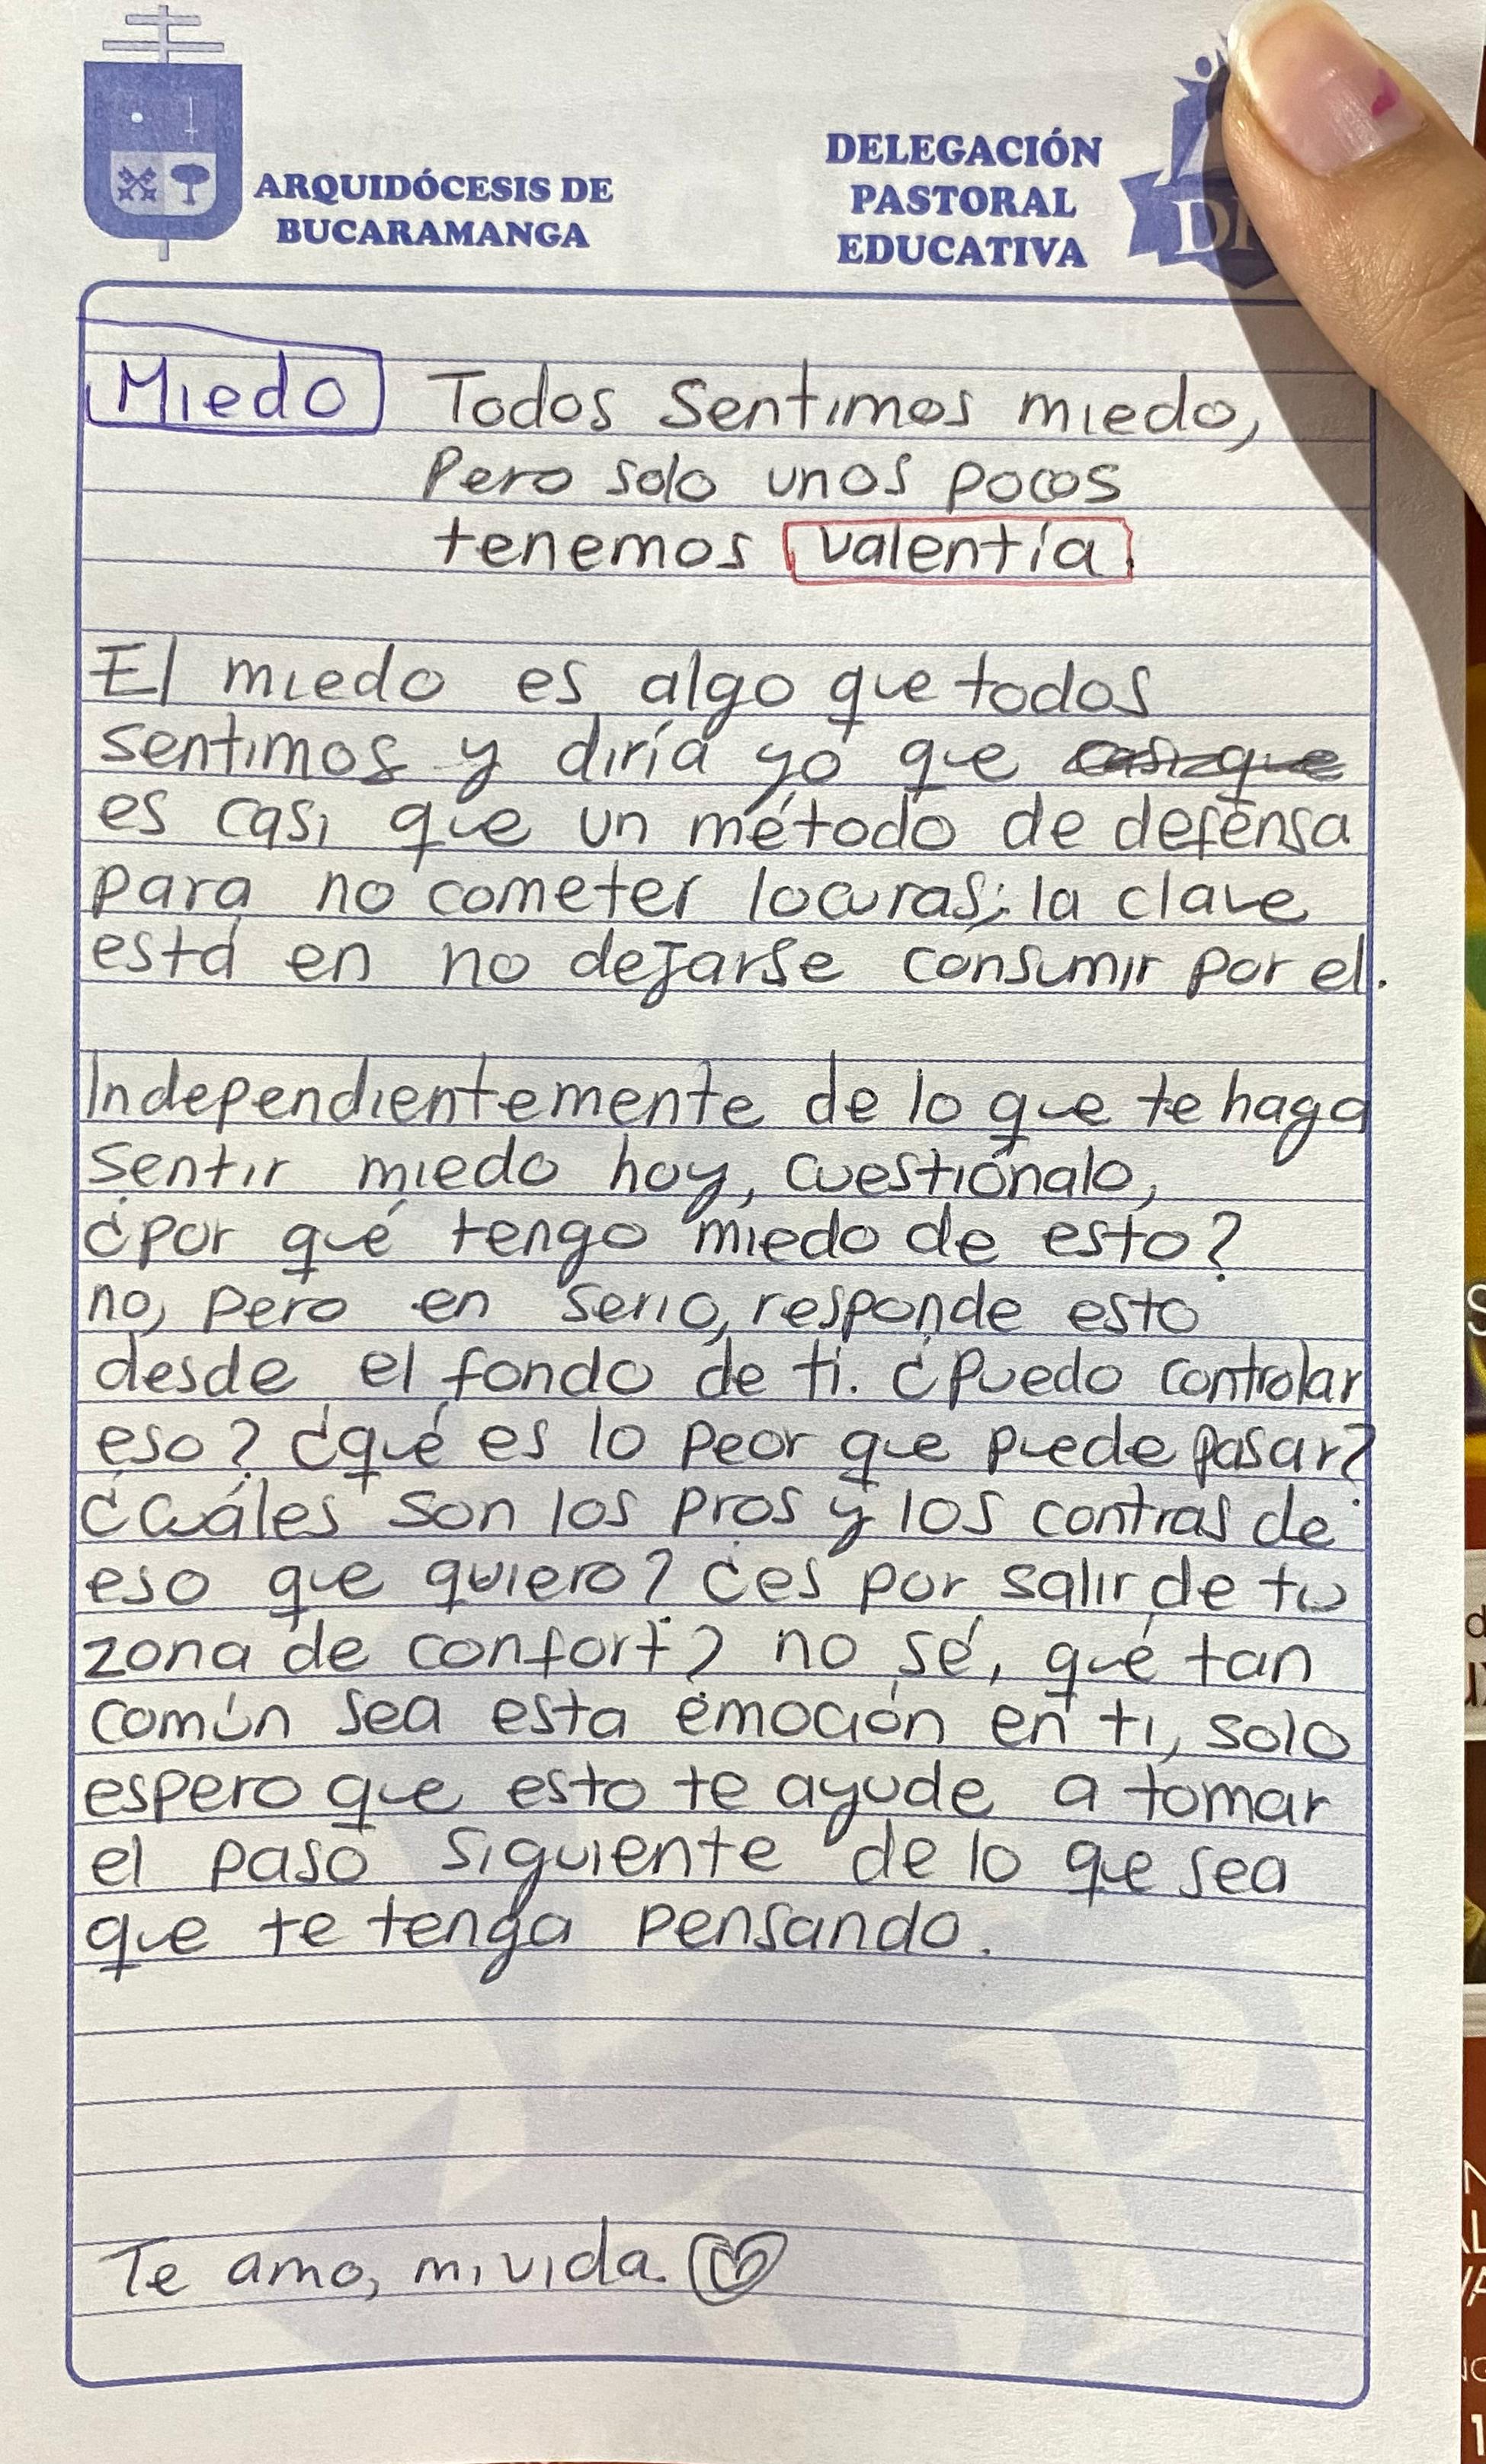 ARQUIDÓCESIS DE
BUCARAMANGA
DELEGACIÓN
PASTORAL
EDUCATIVA
Miedo Todos Sentimos miedo,
Pero solo unos pocos
tenemos valentía.
El miedo es algo que todos
sentimos y diría yo que casi que
es casi que un método de defensa
para no cometer locuras; la clave
está en no dejarse consumir por el.
Independientemente de lo que te haga
sentir miedo hoy, cuestiónalo,
¿por qué tengo miedo de esto?
no, pero en serio, responde esto
desde el fondo de ti. ¿Puedo controlar
eso? ¿qué es lo peor que puede pasar?
¿Cuáles son los pros y los contras de
eso que quiero? ¿es por salir de tu
zona de confort? no sé, qué tan
común sea esta emoción en ti, solo
espero que esto te ayude a tomar
el paso siguiente de lo que sea
que te tenga pensando.
Te amo, mi vida.